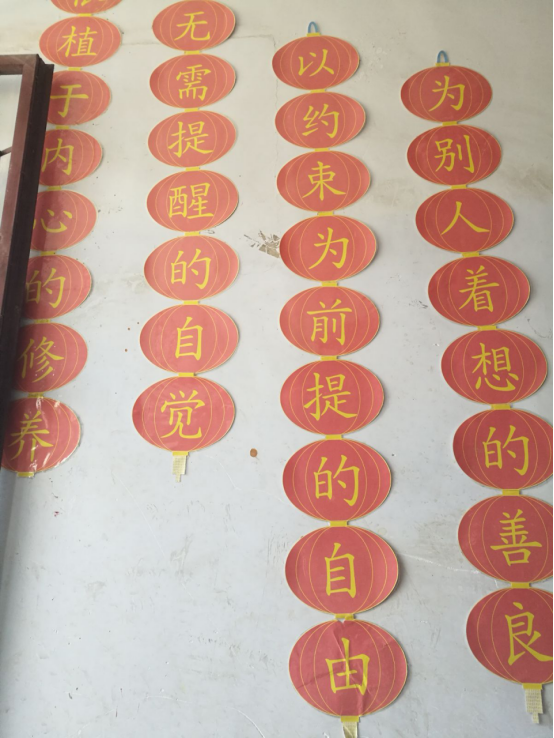 植于内心的修养
无需提醒的自觉
以约束为前提的自由
为别人着想的善良